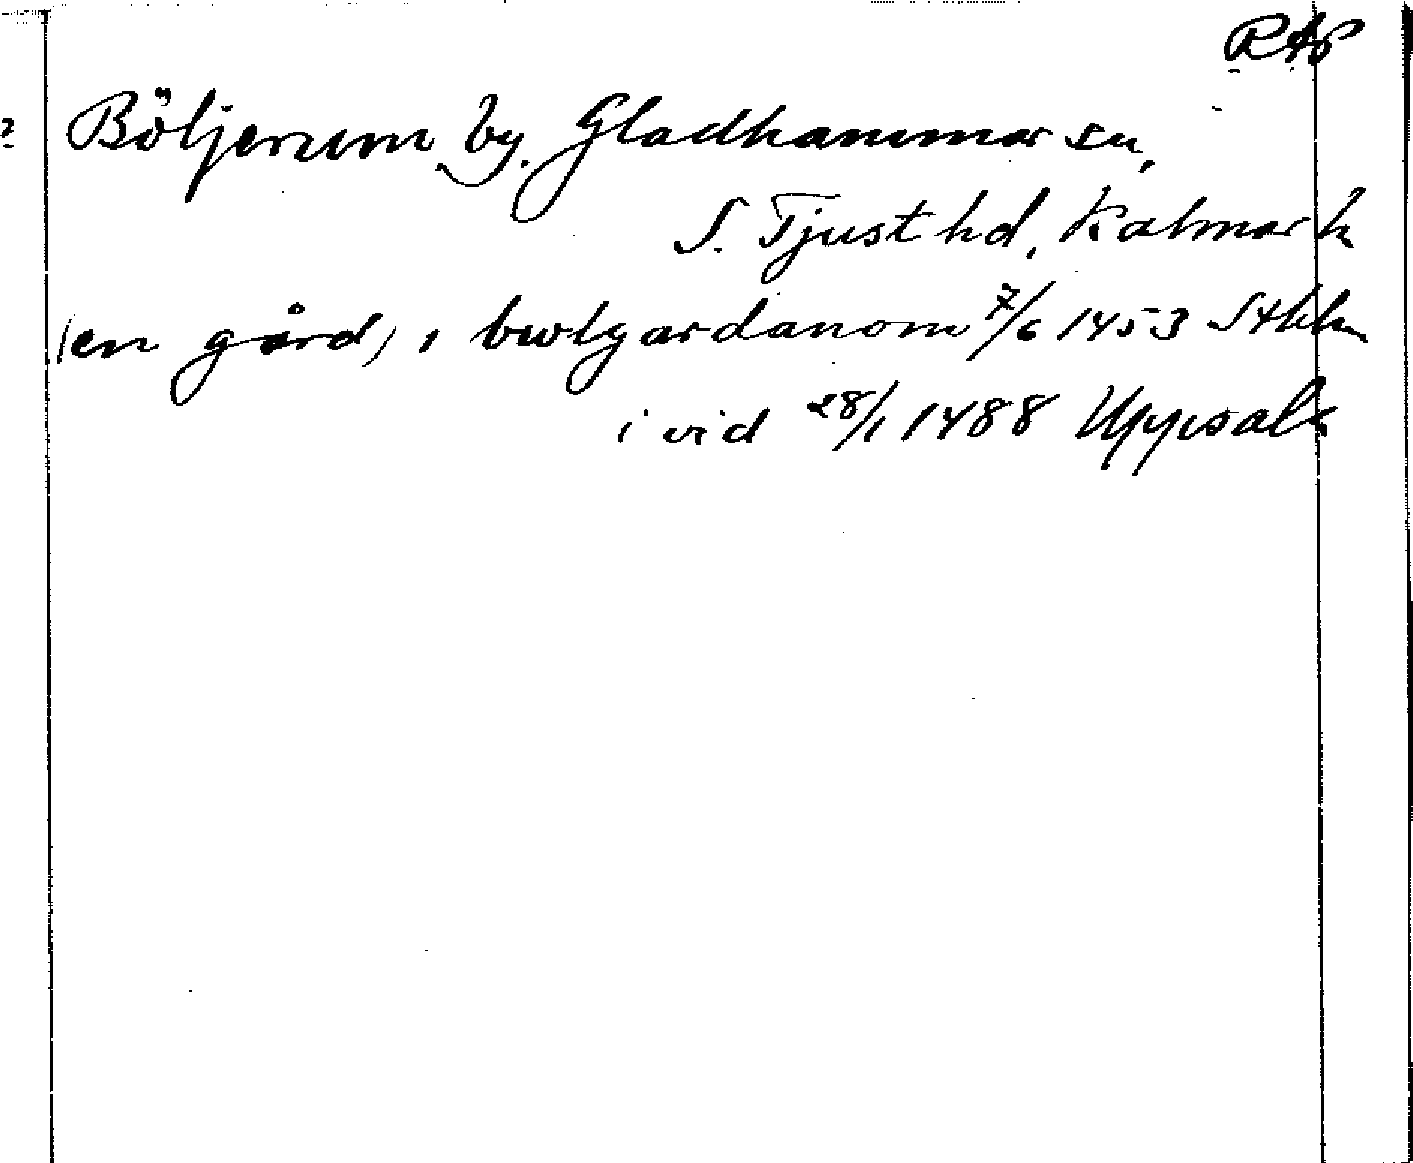 RAP
Böljerum, by, Gladhammar sn,
S. Tjust hd, Kalmar l
(en gård) i bwlgardanom 7/6 1453 Sthlm
i vid 28/1 1488 Uppsala